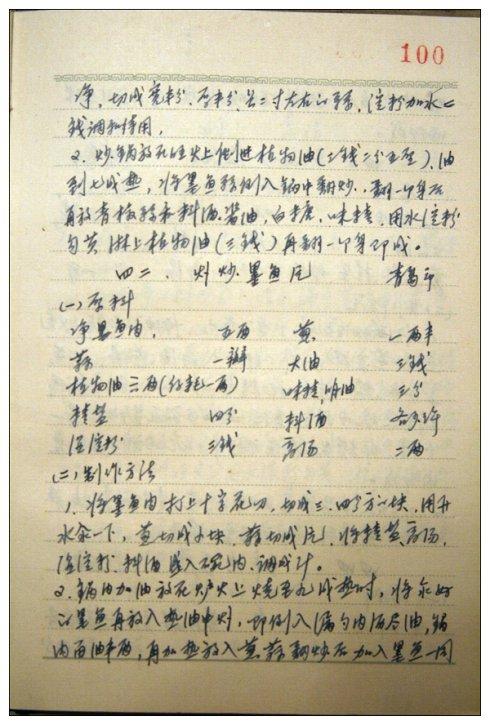 100
净，切成宽半分、厚半分、长二寸左右的丝，淀粉加水二
钱调和待用。
2、炒锅放在旺火上倒进植物油（三钱二分五厘），油
到七成热，将墨鱼丝倒入锅中翻炒，翻一个身后
再放青椒丝和料酒、酱油、白糖、味精，用水淀粉
勾芡淋上植物油（三钱）再翻一个身即成。
四二、爆炒墨鱼片 青岛市
（一）原料
净墨鱼肉 五两 葱 一两半
蒜 一瓣 大油 三钱
植物油三两（约耗一两） 味精、明油 三分
精盐 四分 料酒 各少许
湿淀粉 三钱 高汤 二两
（二）制作方法
1、将墨鱼肉打上十字花刀，切成三、四分方一块，用开
水汆一下，葱切成小块，蒜切成片，将精盐、高汤、
湿淀粉、料酒盛入碗内，调成汁。
2、锅内加油放在炉火上烧至九成热时，将汆好
的墨鱼再放入热油中爆，即倒入漏勺内沥尽油，锅
内留油半两，再加热放入葱、蒜翻炒后加入墨鱼一同